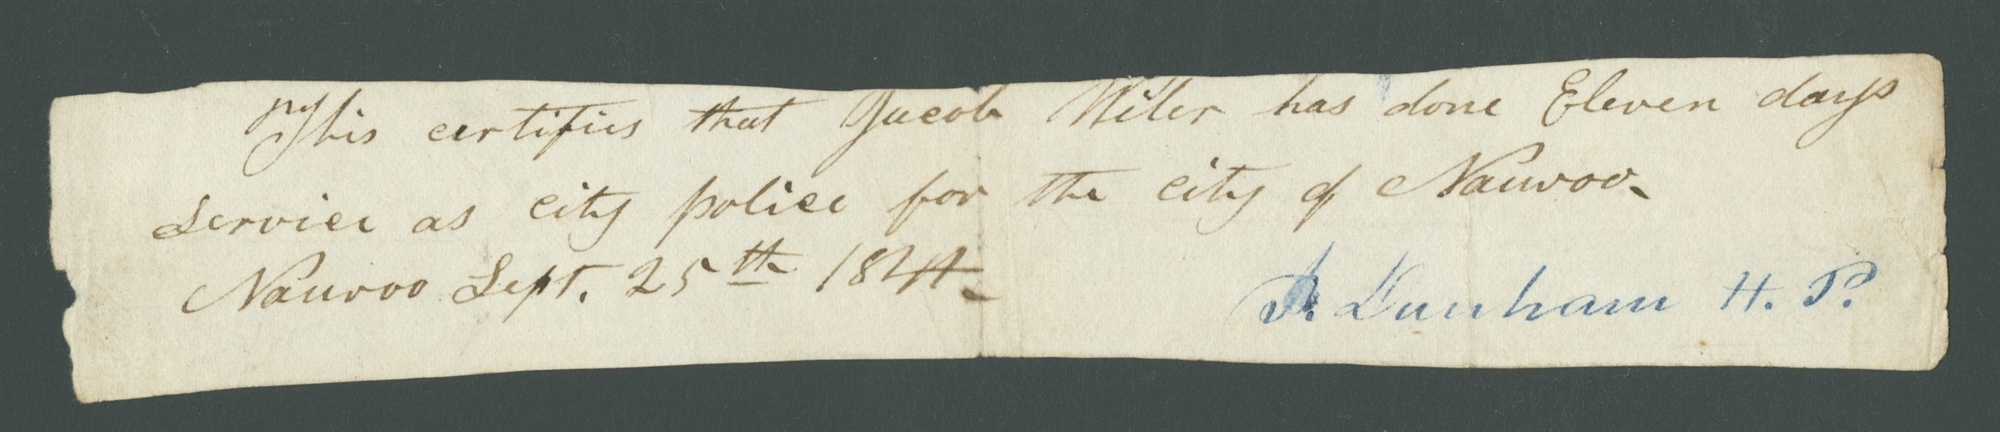 This certifies that Jacob Wiler has done Eleven days
service as city police for the city of Nauvoo.
Nauvoo Sept. 25th 1844.
Dunham H. P.